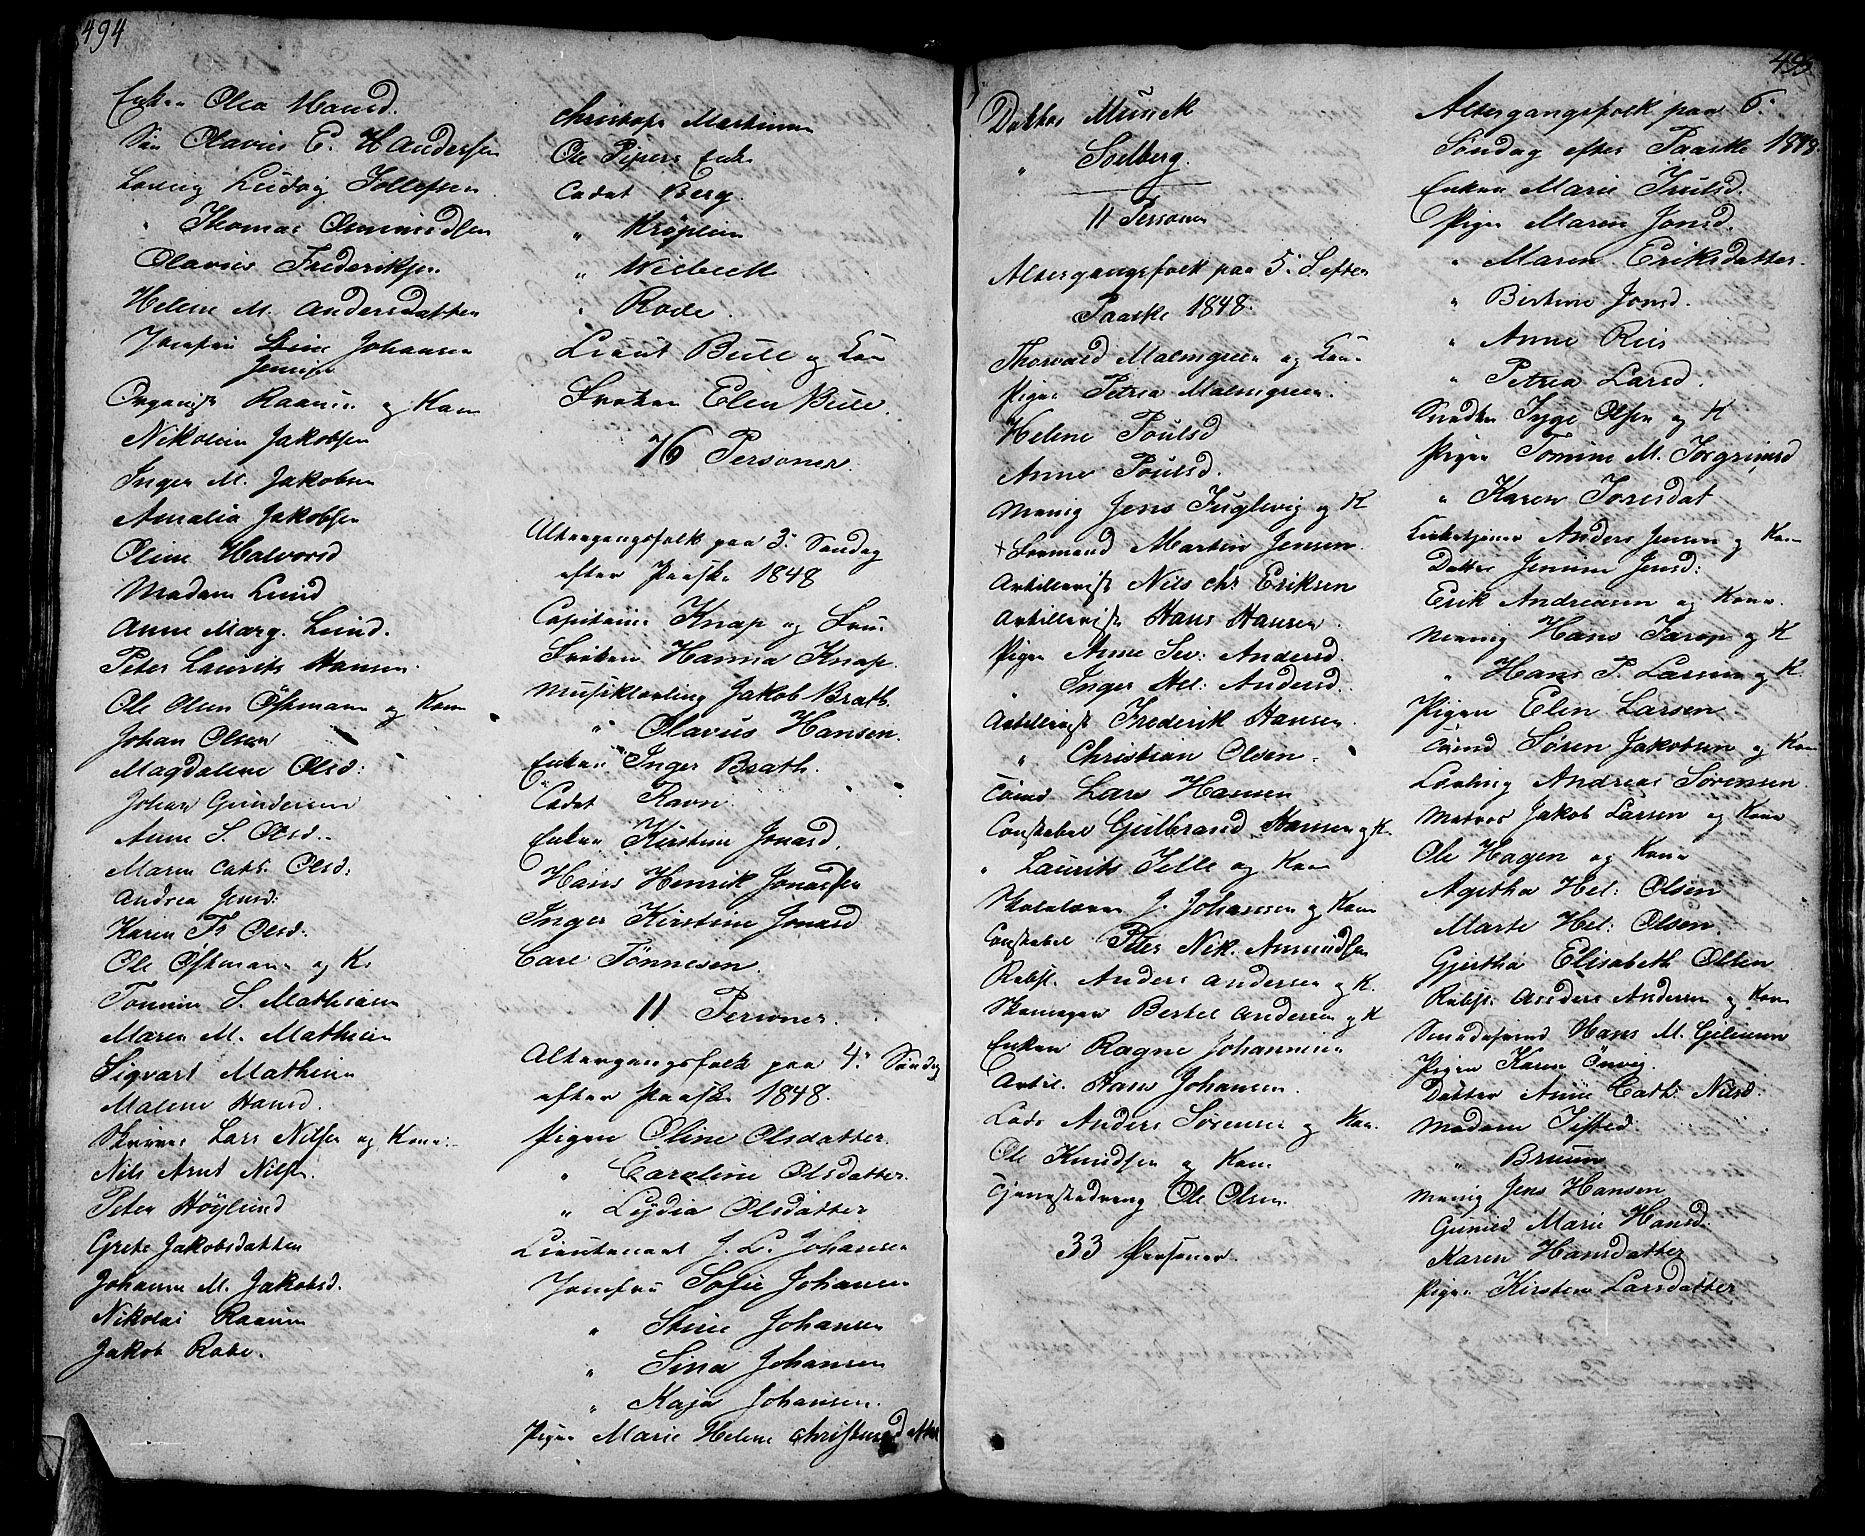 494
Enken Olea Hansd.
Søn Olavius E. H Andersen
Lærling Ludvig Tollefsen
" Thomas Amundsen
Olavius Frederiksen
Helene M. Andersdatter
Jomfru Stine Johansen
Organist Raaum og Kone
Nikolai Jakobsen
Inger M. Jakobsen
Amalia Jakobsen
Oline Halvorsd
Madam Lund
Anne Marg. Lund.
Peter Laurits Hansen.
Ole Olsen Østmann og Kone
Johan Olsen
Magdalene Olsd:
Johan Gundersen
Anne S. Olsd.
Maren Cath. Olsd:
Andrea Jensd:
Karen Olsd.
Ole Østmann og K.
Tomine S. Mathiesen
Maren M. Mathiesen
Sigvart Mathiesen
Malene Hansd.
Skriver Lars Nilsen og Kone
Nils Arnt Nilsen.
Peter Höylund
Grete Jakobsdatter
Johanne M. Jakobsd.
Nikolai Raaum
Jakob Rode.
Christofer Martinsen
Ole Pipers Enke
Cadet Berg
" Krøplein
" Wisbech
" Rode.
Lieut Bull og Frue
Frøken Elen Bull.
76 Personer.
Altergangsfolk paa 3. Søndag
efter Paaske 1848
Capitain Knap og Frue
Frøken Hanna Knap.
Musiklærling Jakob Brath.
" Olavus Hansen.
Enken Inger Brath.
Cadet Ravn.
Enken Kirstine Jonasd.
Hans Henrik Jonassen
Inger Kirstine Jonasd
Carl Tönnesen.
11 Personer.
Altergangsfolk paa 4. Søndag
efter Paaske 1848.
Pigen Oline Olsdatter.
" Caroline Olsdatter.
" Lydia Olsdatter
Lieutenant J. L. Johansen
Jomfru Sofie Johansen
" Stine Johansen
" Sina Johansen
" Kaja Johansen.
Pigen Marie Helene Christensdatter
495.
Dokter Munck
" Solberg.
11 Personer
Altergangsfolk paa 5. S. efter
Paaske 1848.
Thorvald Malmgreen og Kone
Pigen Petrea Malmgreen.
Helene Poulsd
Anne Poulsd.
Menig Jens Fuglevig og K
+ Formand Martin Jensen.
Artillerist Nils Chr Eriksen
Artillerist Hans Hansen.
Pigen Anne Sev: Andersd.
" Inger Hel: Andersd.
Artillerist Frederik Hansen.
" Christian Olsen.
Tømd Lars Hansen
Constabel Gulbrand Hansen og K.
" Laurits Telle og Kone
Skolelærer J. Johansen og Kone
Constabel Peter Nik. Amundsen
Rebsl. Anders Andersen og K.
Skomager Bertel Andersen og K
Enken Ragne Johannesen
Artil. Hans Johansen.
Lods Anders Sörensen og Kone.
Ole Knudsen og Kone
Tjenestedreng Ole Olsen.
33 Personer.
Altergangsfolk paa 6.
Søndag efter Paaske 1848.
Enken Marie Poulsd.
Pigen Maren Jonsd.
" Maren Eriksdatter.
" Bertine Jonsd.
" Anne Riis
" Petrea Larsd.
Snedker Tyge Olsen og K
Pigen Tomine M. Torgrimsd
" Karen Toresdat
Kirketjener Anders Jensen og Kone
Datter Jensine Jensd:
Erik Andreassen og Kone.
Menig Hans Jacop og K
" Hans P. Larsen og K
Pigen Elen Larsen
Tømd Sören Jakobsen og Kone
Lærling Andreas Sörensen
Matros Jakob Larsen og Kone
Ole Hagen og Kone
Agetha Hel: Olsen
Marte Hel: Olsen.
Gjertha Elisabeth Olsen
Rebsl. Anders Andersen og Kone
Smedesvend Hans M. Gilesen
Pigen Karen
Datter Anne Cath: Nilsd.
Madam Tisted.
" Bruun
Menig Jens Hansen
Gunild Marie Hansd.
Karen Hansdatter
Pigen Kirsten Larsdatter